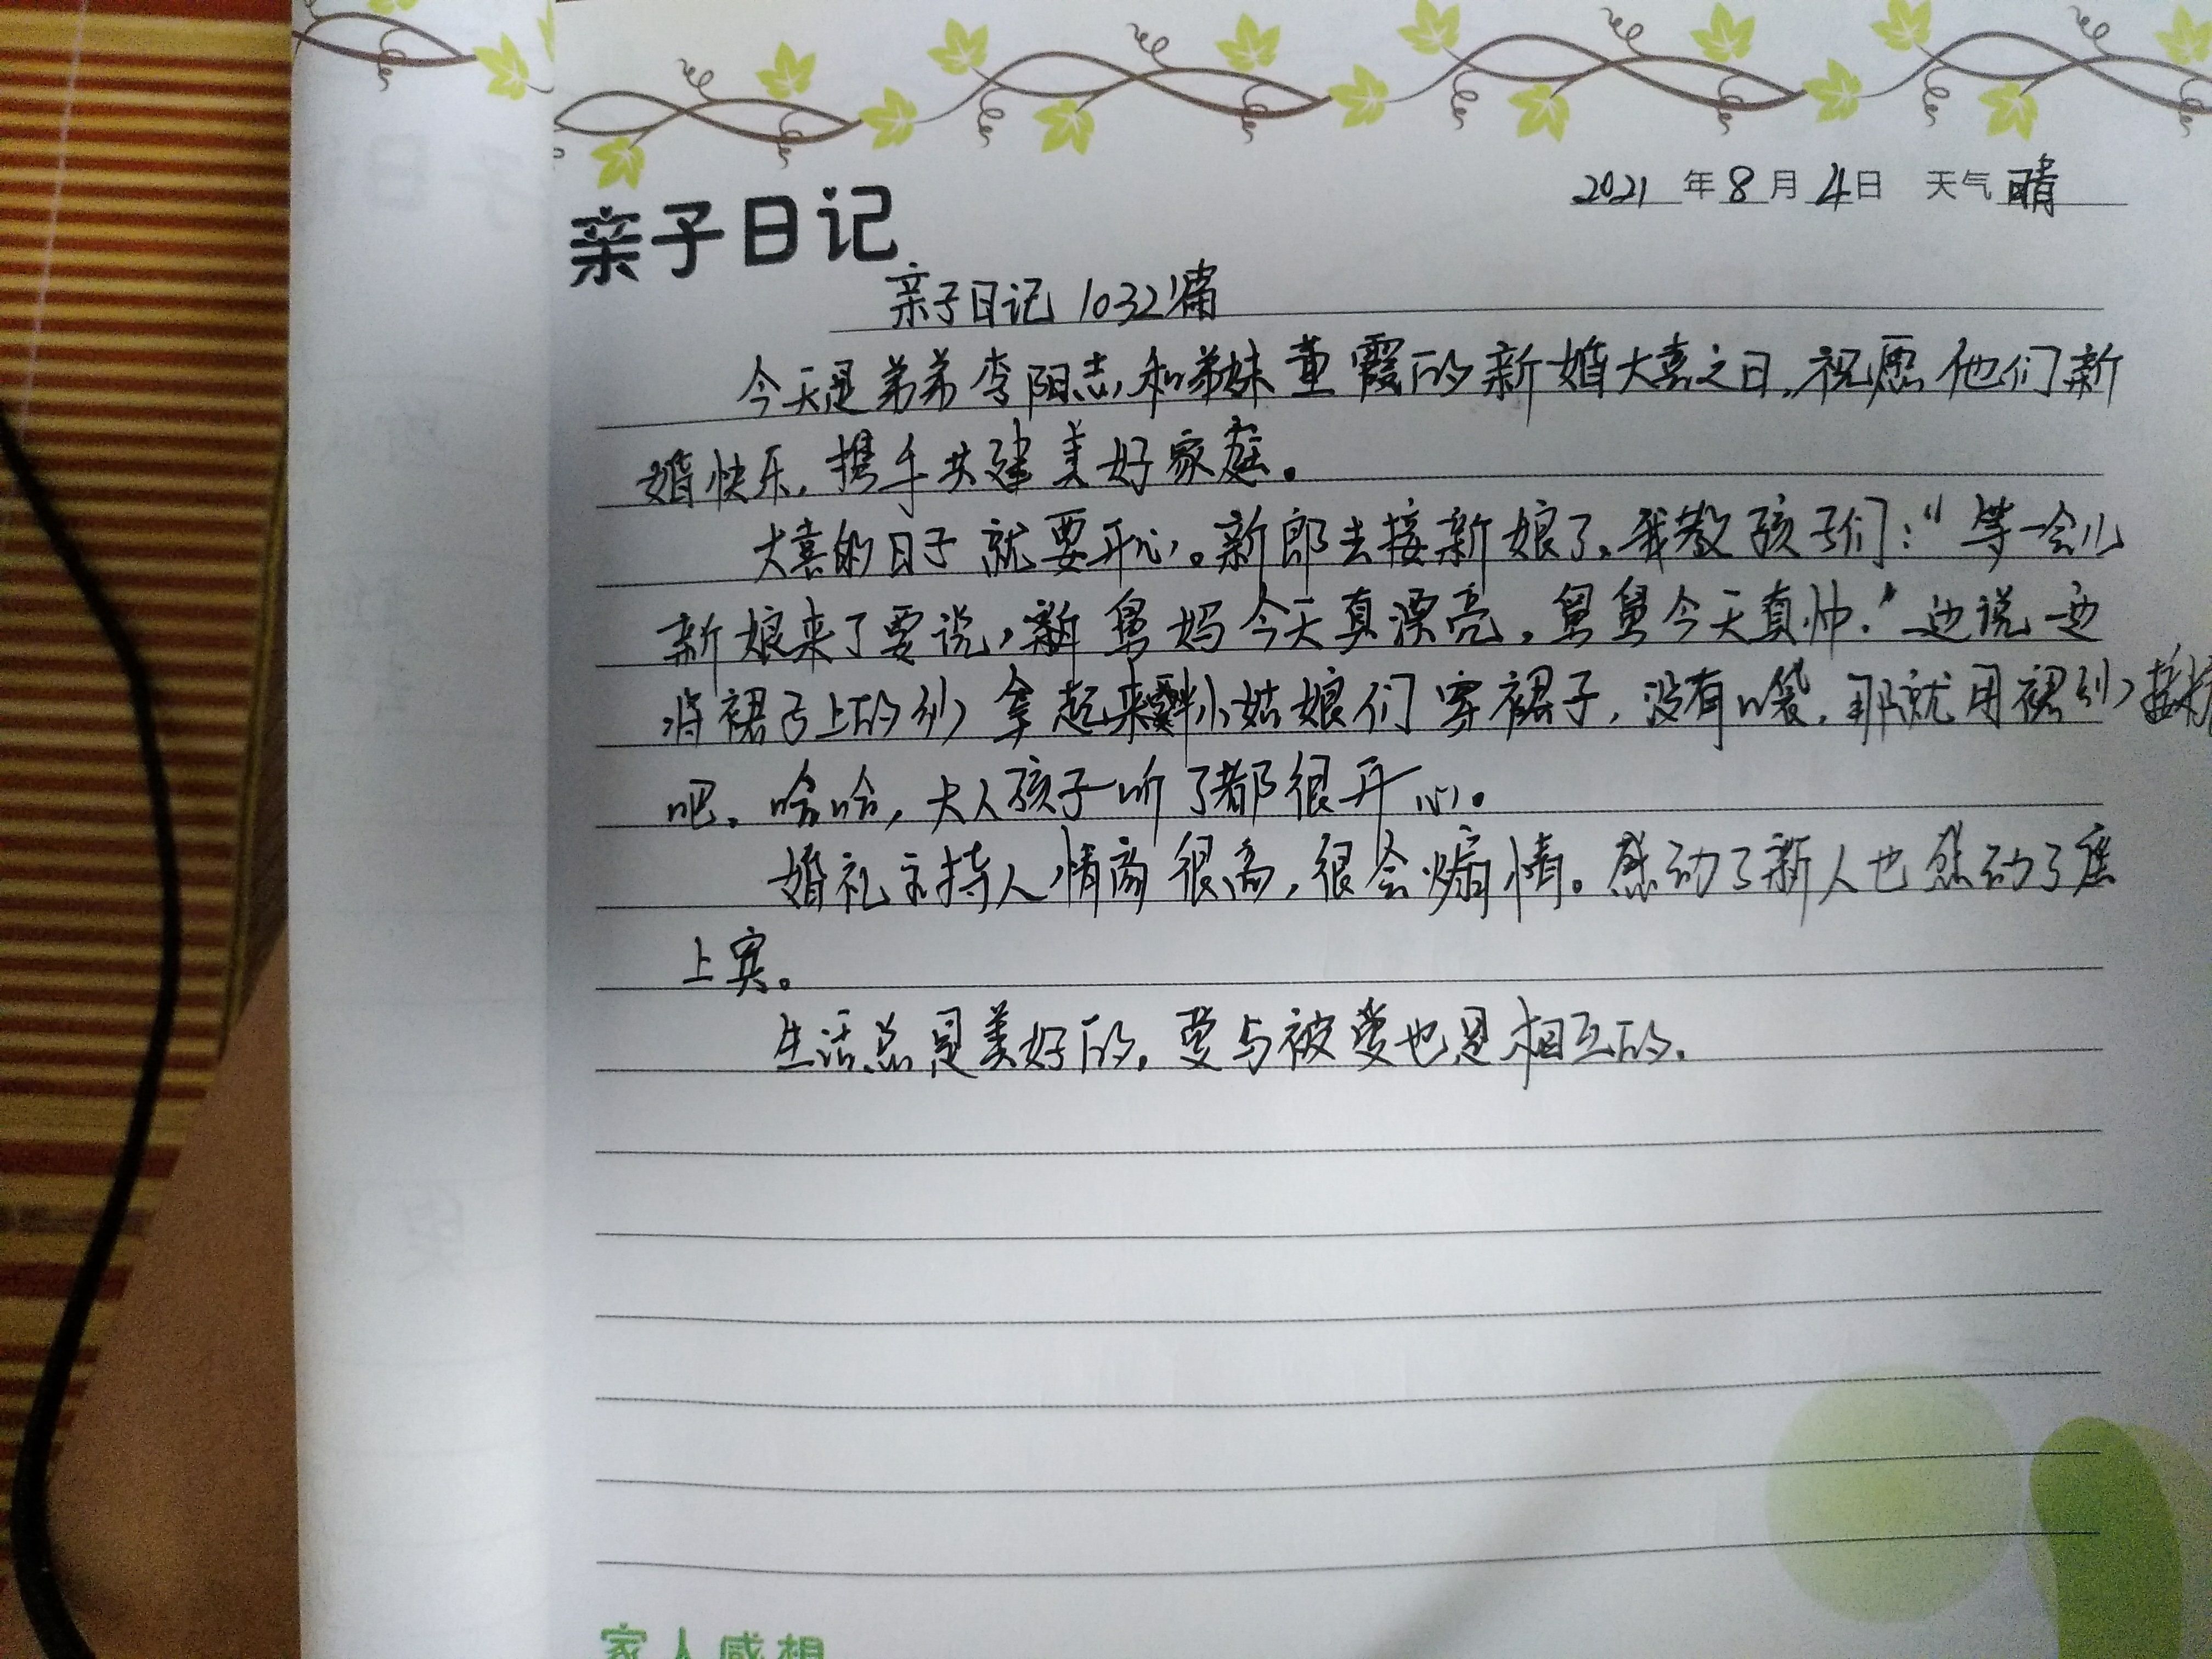 2021年8月4日 天气晴
亲子日记
亲子日记1032篇
今天是弟弟李阳志和弟妹董霞的新婚大喜之日,祝愿他们新
婚快乐,携手共建美好家庭。
大喜的日子就要开心。新郎去接新娘了。我教孩子们:“等一会儿
新娘来了要说,新舅妈今天真漂亮,舅舅今天真帅.”边说一边
将裙子上的纱拿起来 小姑娘们穿裙子,没有口袋,那就用裙纱
吧。哈哈,大人孩子听了都很开心。
婚礼主持人情商很高,很会煽情。感动了新人也感动了座
上宾。
生活总是美好的,爱与被爱也是相互的.
家人感想